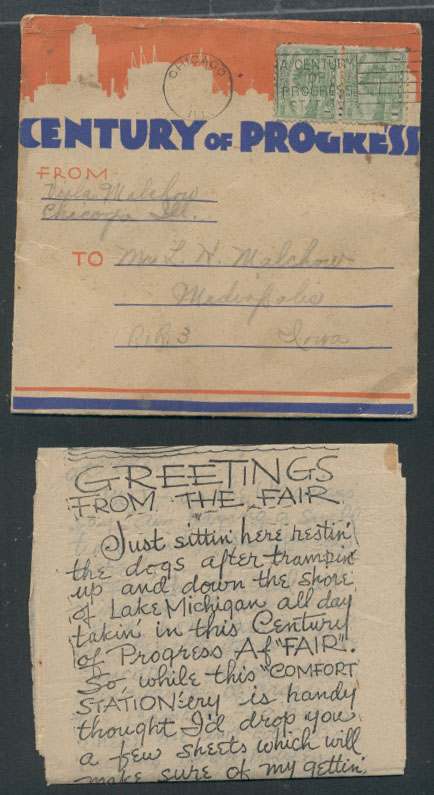 CHICAGO
ILL.
A CENTURY
OF
PROGRESS
CENTURY OF PROGRESS
FROM
Malchow
Chicago Ill.
TO Mrs L. H. Malchow
Mediapolis
R.R. 3 Iowa
GREETINGS
FROM THE FAIR
Just sittin' here restin'
the dogs after trampin'
up and down the shore
of Lake Michigan all day
takin' in this Century
of Progress Af "FAIR".
So, while this "COMFORT
STATION"ery is handy
thought I'd drop you
a few sheets which will
make sure of my gettin'